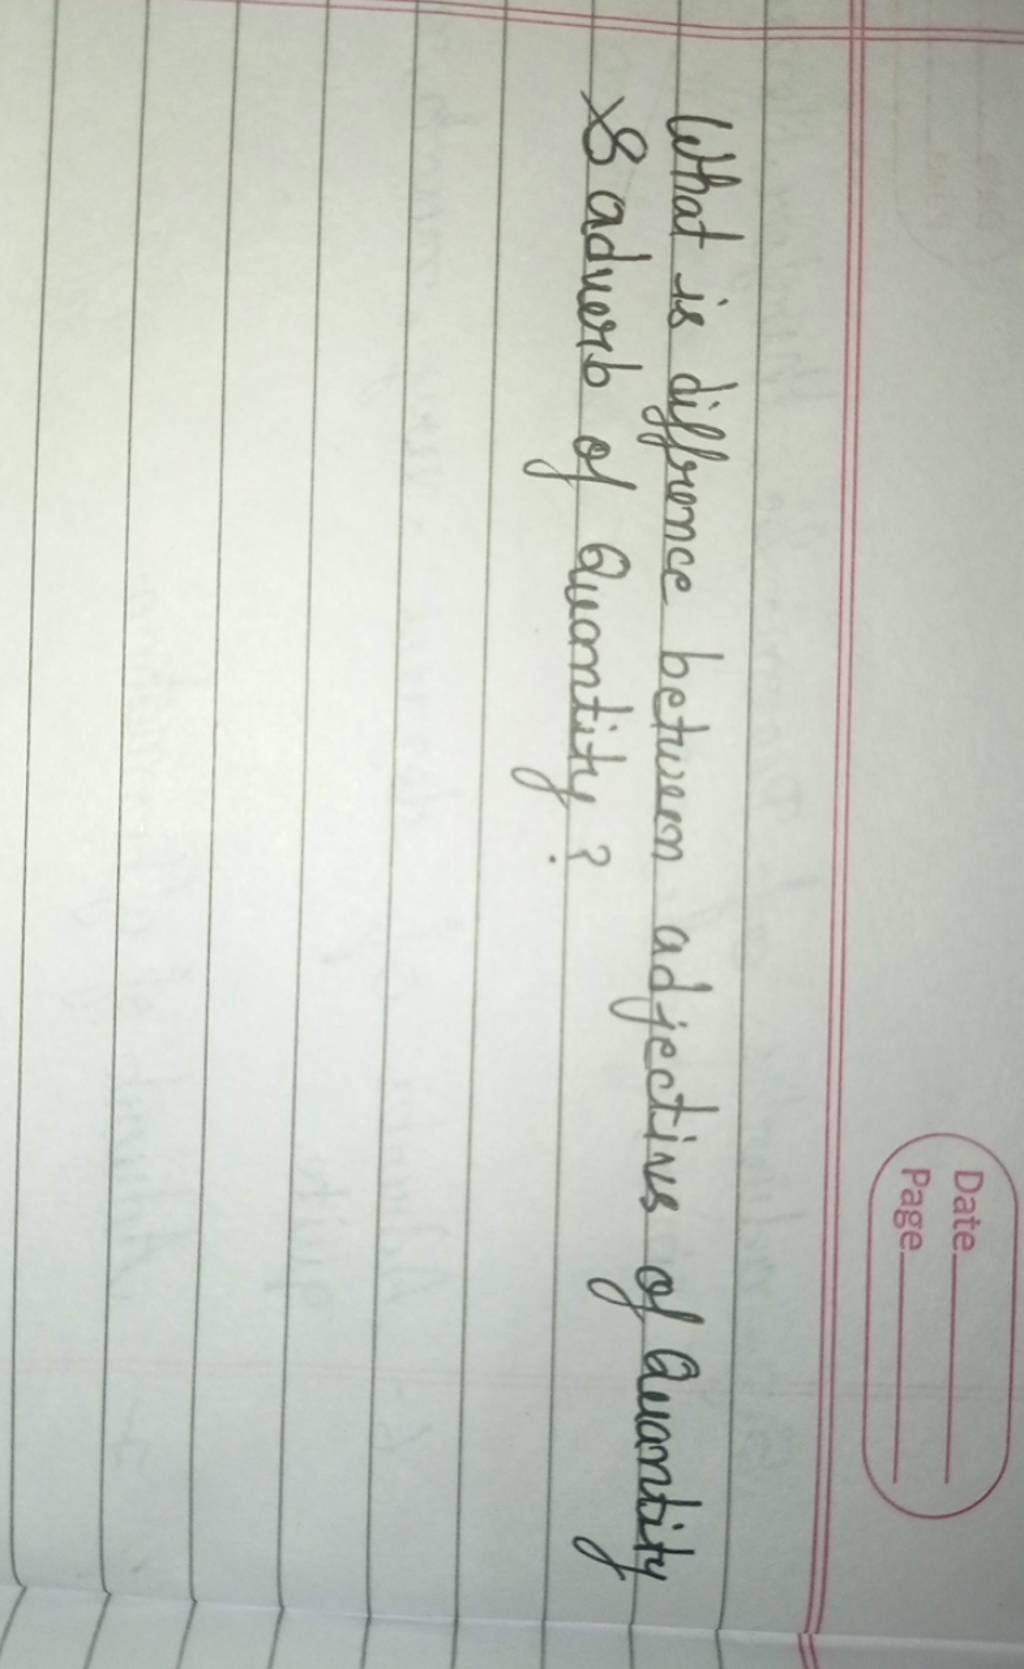 Date
Page
What is diffrence between adjectives of Quantity
& adverb of Quantity?